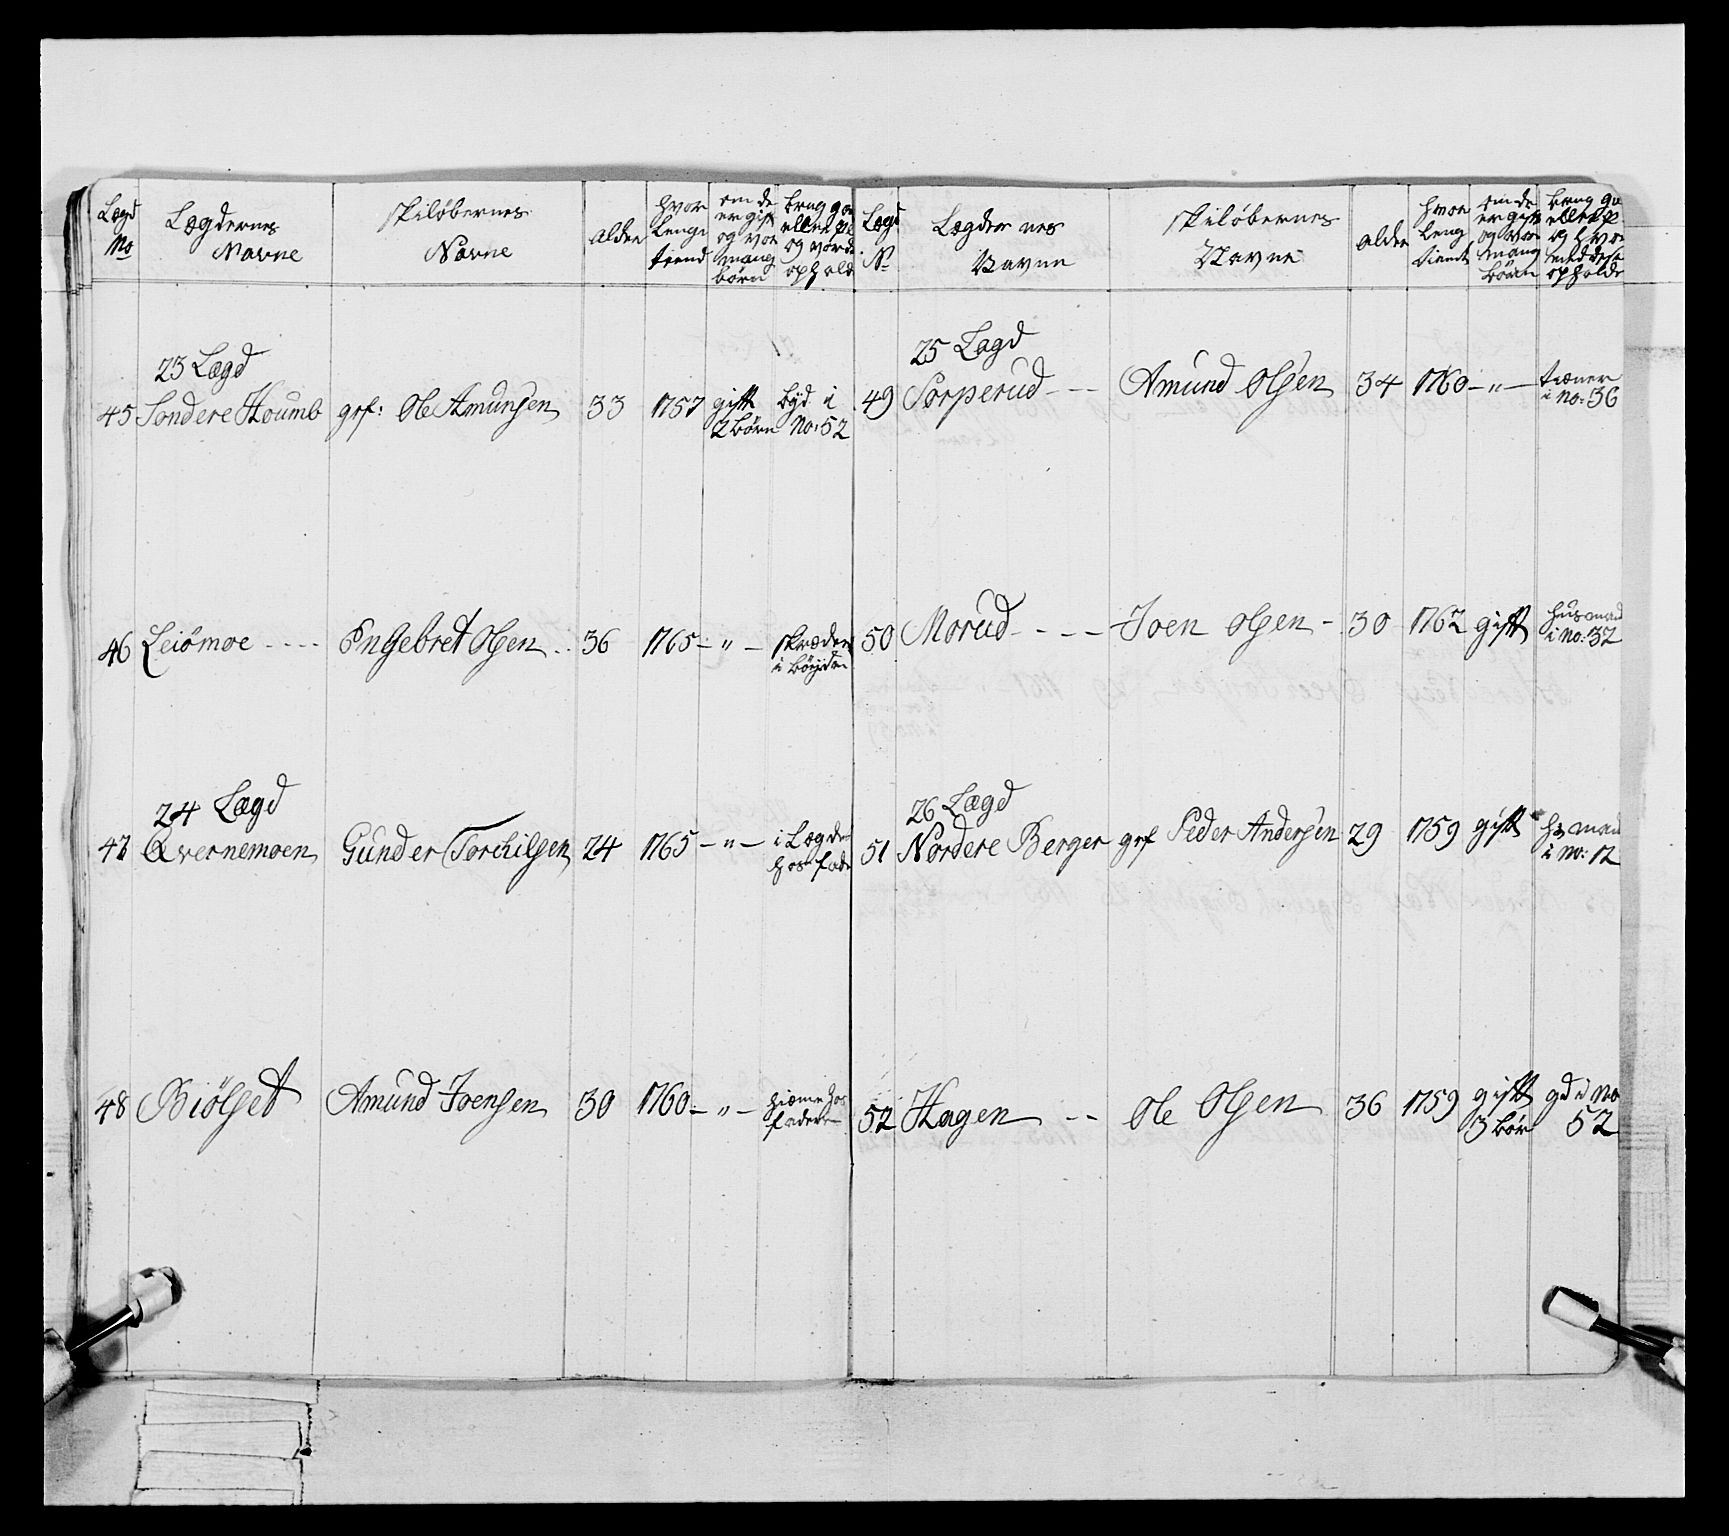 Lægd No | Lægdernes Navne | skiløbernes Navne | alder | hvor lenge tient | om de er gift og vor mang børn | brug og vord ophold
23 Lægd
45 Söndere Houmb | grf: Ole Amunsen | 33 | 1757 | gift 2 børn | byd i No: 52
46 Leiömoe - - - - | Engebret Olsen | 36 | 1765 - " - | skræder i böijden
24 Lægd
47 Qvernemoen | Gunder Torchilsen | 24 | 1765 - " - | i Lægde hos fade
48 Biölset | Amund Joensen | 30 | 1760 - " - | hieme hos faderen
Lægd No | Lægdernes Navne | skiløbernes Navne | alder | hvor leng tient | om de er gift og vor mang børn | brug og hvor med dese opholde
25 Lægd
49 Sorperud - - - | Amund Olsen | 34 | 1760 - " - | tiæner i No: 36
50 Morud - - - - | Joen Olsen - | 30 | 1762 | gift | husmad i No: 32
26 Lægd
51 Nordere Berger | grf Peder Andersen | 29 | 1759 | gift | hs man i No: 12
52 Hagen - - | Ole Olsen | 36 | 1759 | gift 3 bör | gd i No 52